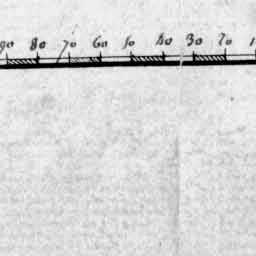 90 80 70 60 50 40 30 20 1